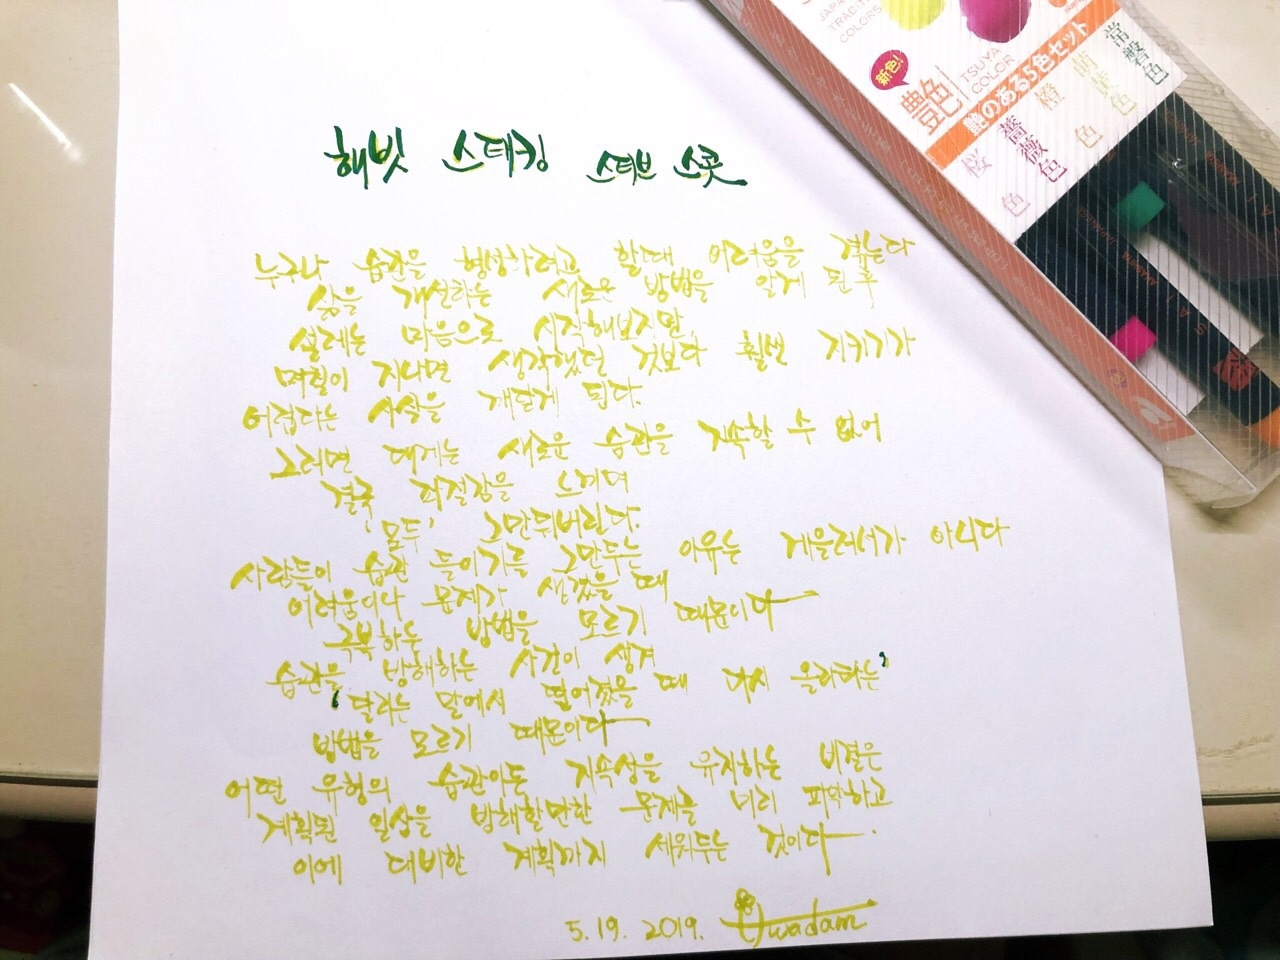 해빗 스태킹 스티브 스콧
누구나 습관을 형성하려고 할때 어려움을 겪는다
삶을 개선하는 새로운 방법을 알게 된 후
설레는 마음으로 시작해보지만,
며칠이 지나면 생각했던 것보다 훨씬 지키기가
어렵다는 사실을 깨닫게 된다.
그러면 대개는 새로운 습관을 지속할 수 없어
결국 좌절감을 느끼며
'모두' 그만둬버린다.
사람들이 습관 들이기를 그만두는 이유는 게을러서가 아니다
어려움이나 문제가 생겼을 때
극복하는 방법을 모르기 때문이다
습관을 방해하는 사건이 생겨
'달리는 말에서 떨어졌을 때 다시 올라타는'
방법을 모르기 때문이다
어떤 유형의 습관이든 지속성을 유지하는 비결은
계획된 일상을 방해할만한 문제를 미리 파악하고
이에 대비한 계획까지 세워두는 것이다.
5. 19. 2019. Hwadam
TRADITIONAL
COLORS
新色!
艶色
TSUYA
COLOR
艶のある5色セット
桜色
薔薇色
橙色
萌黄色
常磐色